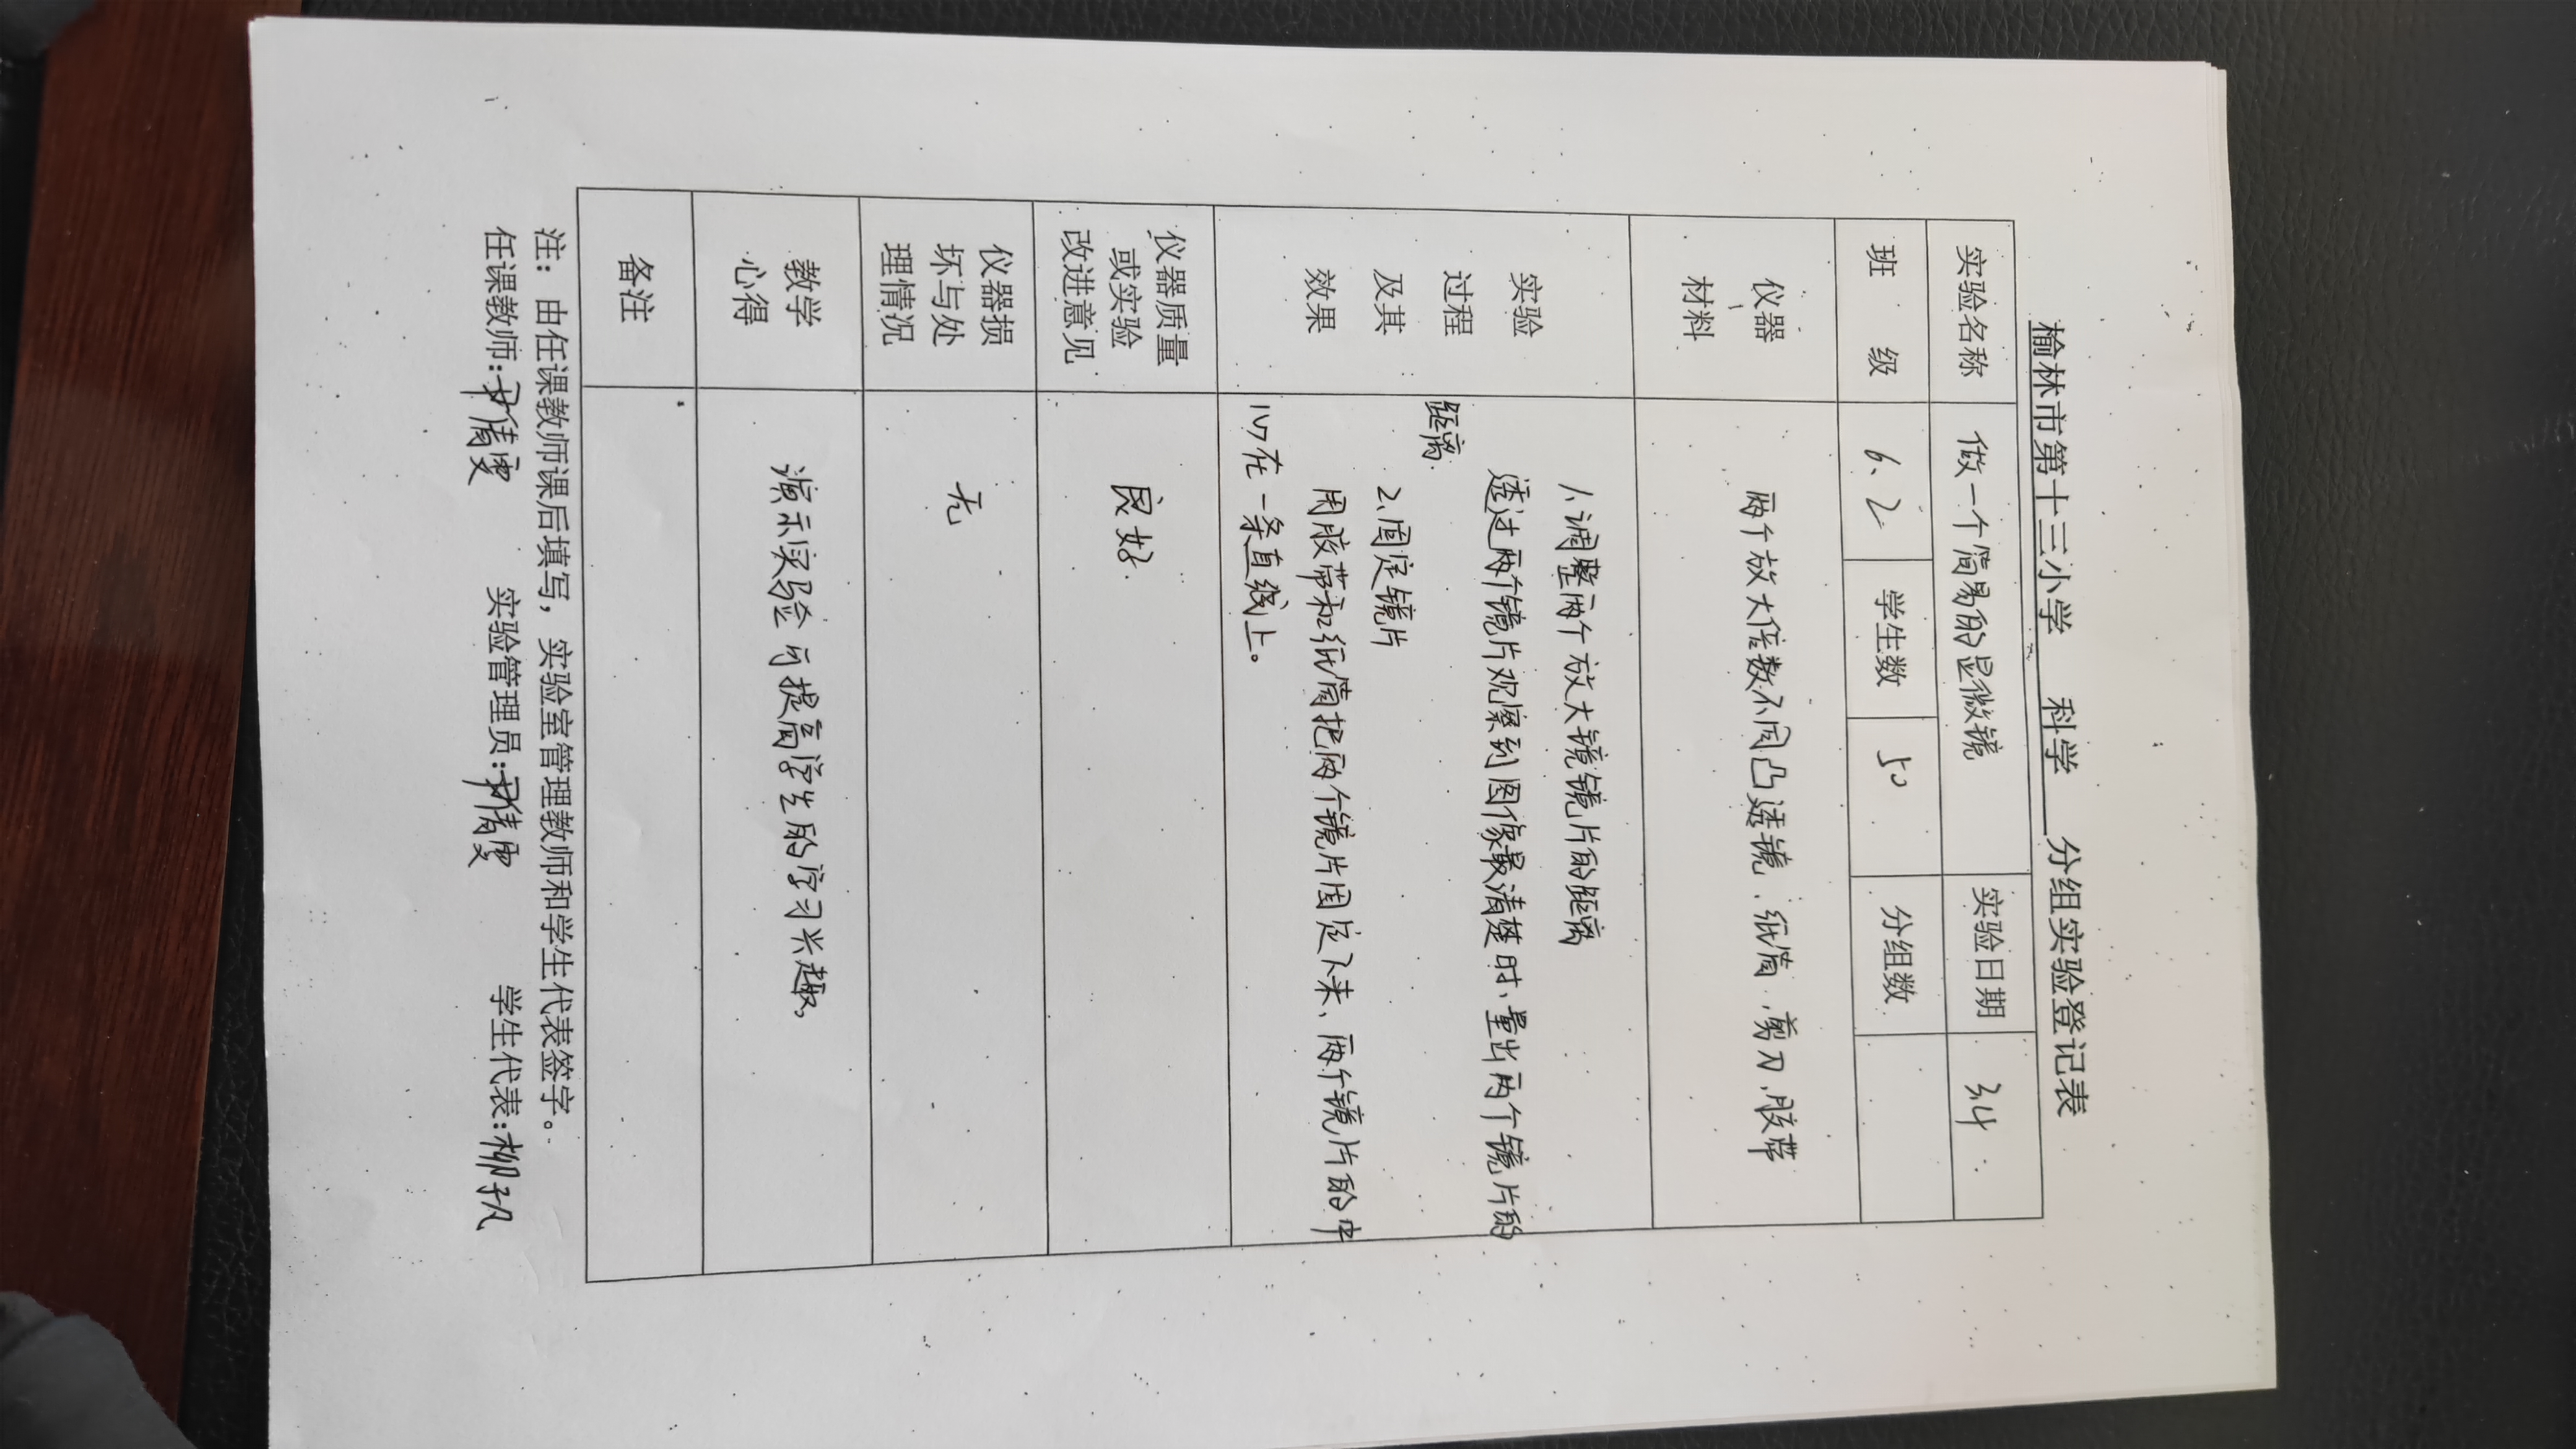 榆林市第十三小学 科学 分组实验登记表
实验名称 做一个简易的显微镜 实验日期 3.4
班级 6.2 学生数 50 分组数
仪器
材料
两个放大倍数不同凸透镜、纸筒、剪刀、胶带
实验
过程
及其
效果
1、调整两个放大镜镜片的距离
透过两个镜片观察到图像最清楚时、量出两个镜片的
距离.
2、固定镜片
用胶带和纸筒把两个镜片固定下来、两个镜片的中
心在一条直线上。
仪器质量
或实验
改进意见
良好.
仪器损
坏与处
理情况
无
教学
心得
演示实验可提高学生的学习兴趣,
备注
注：由任课教师课后填写，实验室管理教师和学生代表签字。
任课教师: 实验管理员: 学生代表:柳